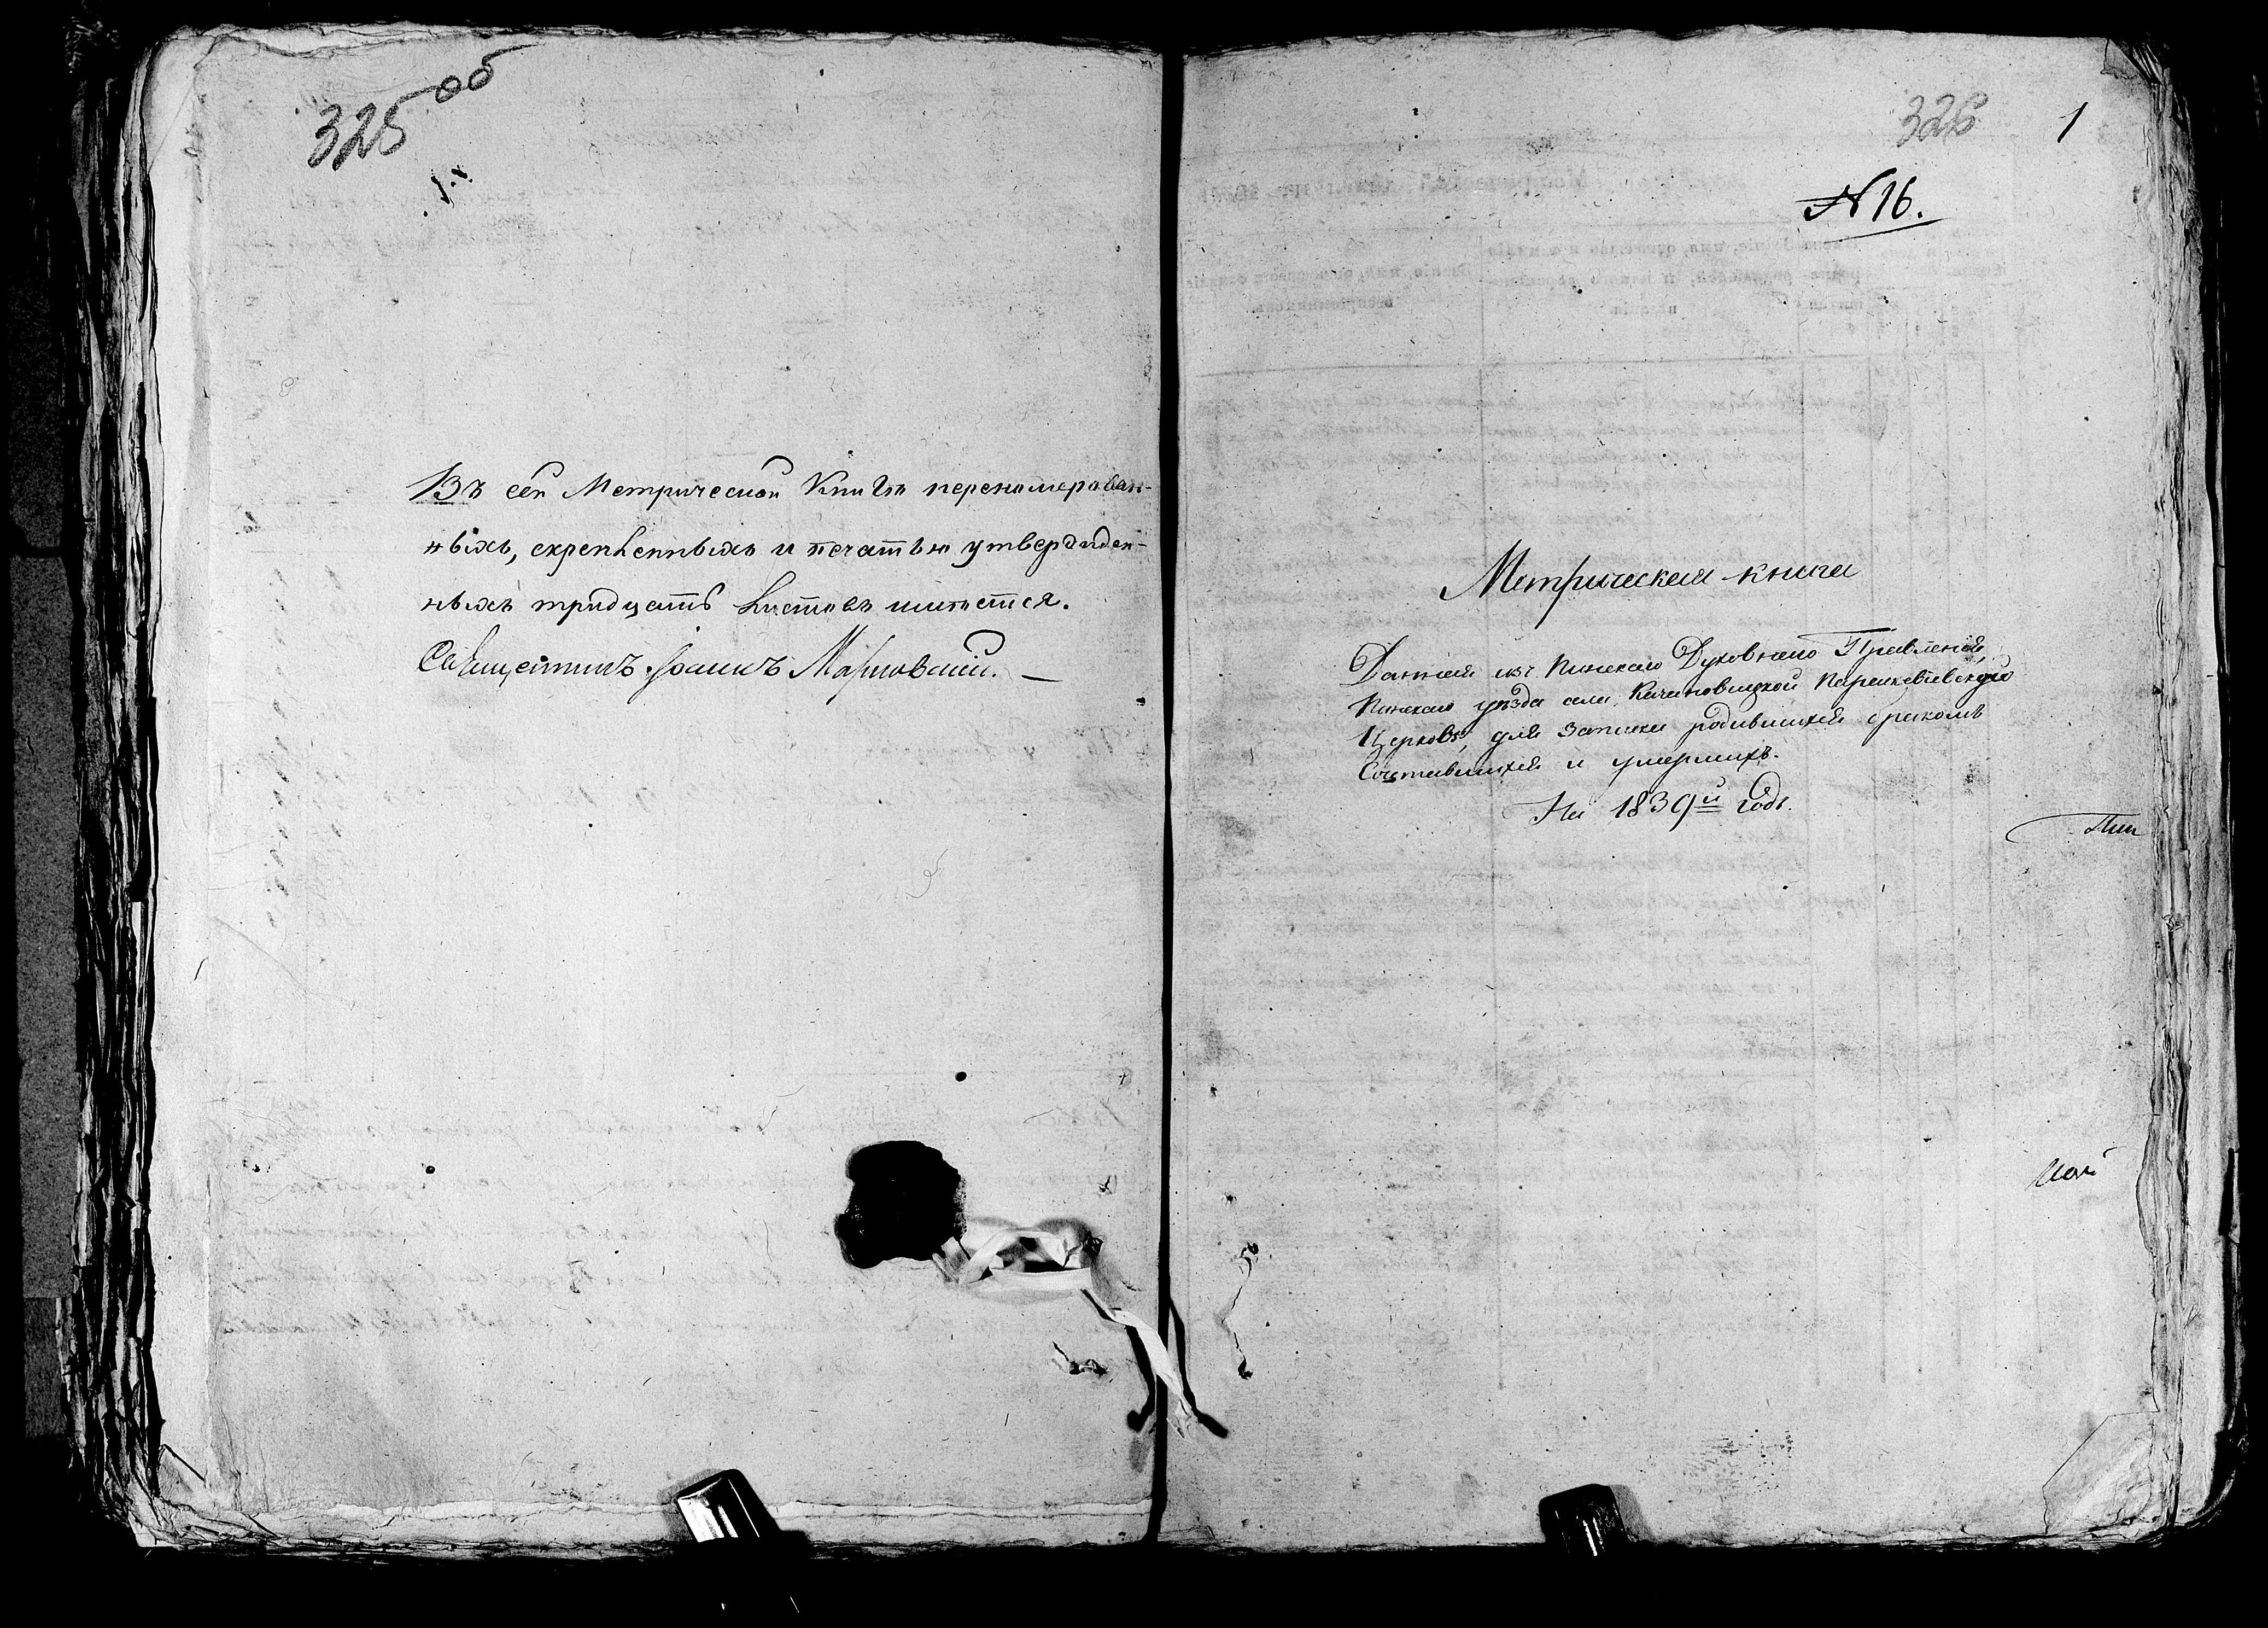 325 об
Въ сей Метрической Книгѣ перенумерован-
ныхъ, скрепленныхъ и печатью утвержден-
ныхъ тридцать листовъ имѣется.
Священникъ Іоаннъ
326
1
N 16.
Метрическая книга
Данная изъ Пинскаго Духовнаго Правленія,
Пинскаго уѣзда села Качановицкой Параскевіевской
Церкви, для записки родившихся бракомъ
Сочетавшихся и умершихъ.
На 1839й годъ.